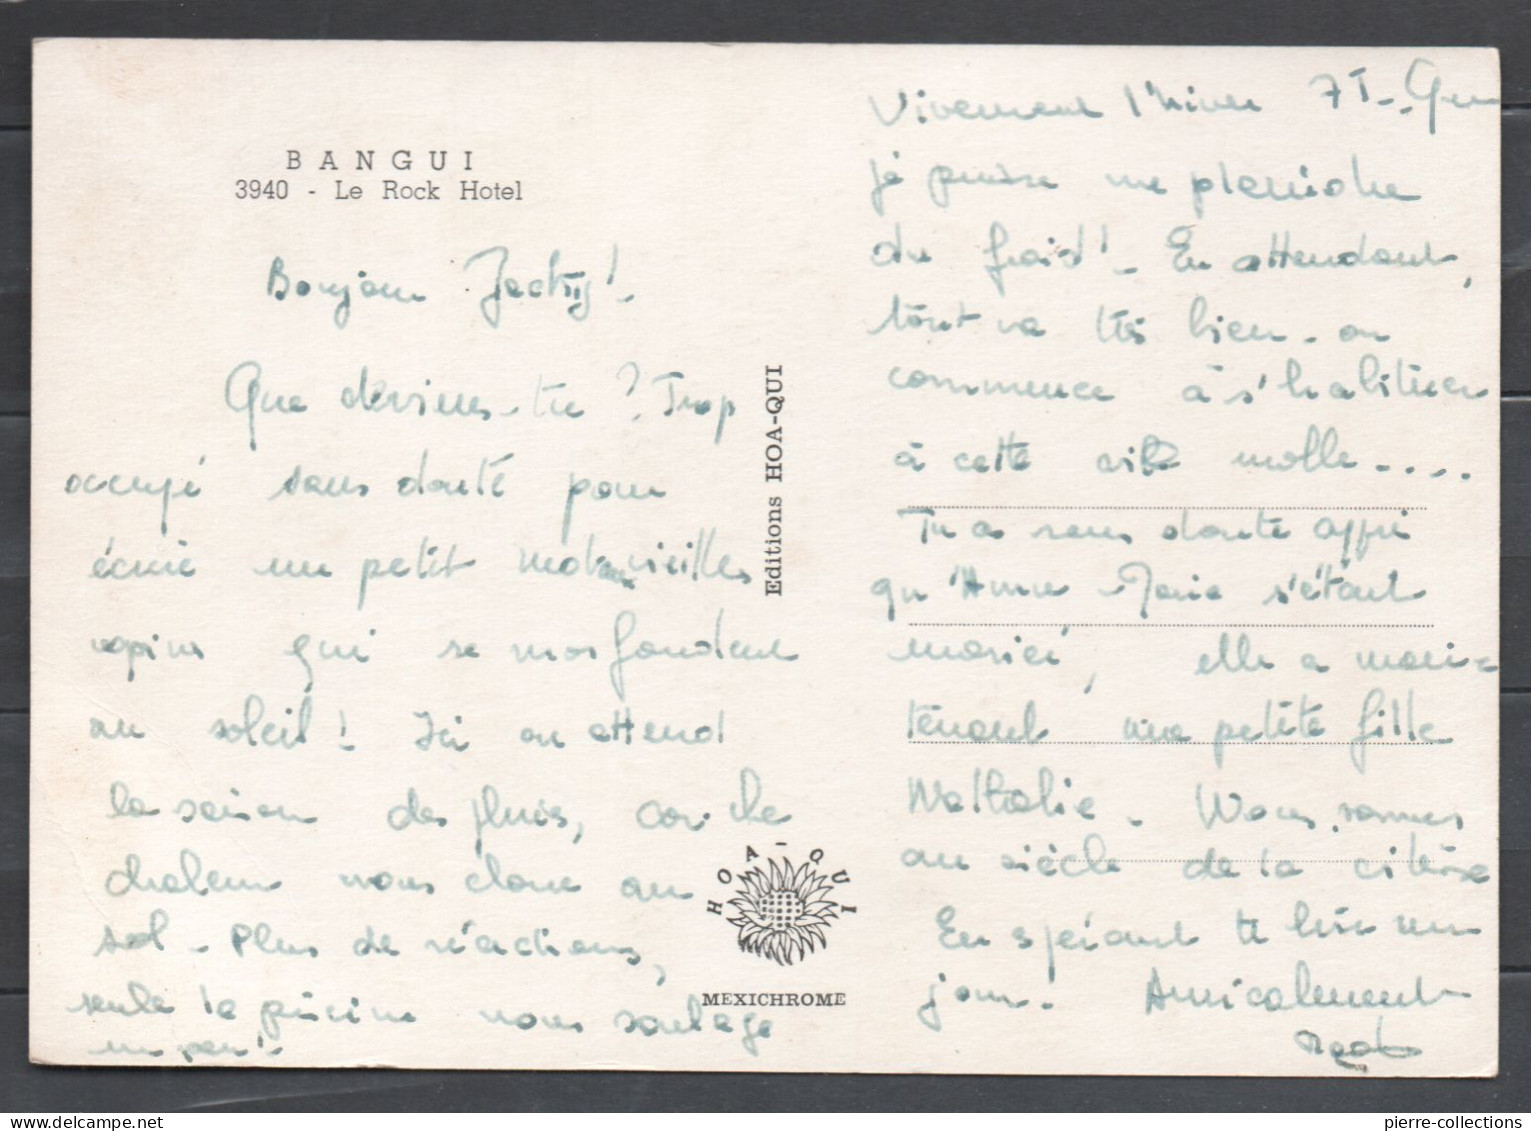 BANGUI
3940 - Le Rock Hotel
Bonjour Jacky!
Que deviens-tu ? Trop
occupé sans doute pour
écrire un petit mot aux vieilles
copines qui se morfondent
au soleil ! Ici on attend
la saison des pluies, car la
chaleur nous cloue au
sol - Plus de réactions,
seule la piscine nous soulage
un peu !
Editions HOA-QUI
HOA-QUI
MEXICHROME
Vivement l'hiver 71 - Que
je puisse me plaindre
du froid ! - En attendant,
tout va très bien - on
commence à s'habituer
à cette ville molle....
Tu as sans doute appris
qu'Anne-Marie s'étant
mariée, elle a main-
tenant une petite fille
Nathalie - Nous sommes
au siècle de la vitesse
En espérant te lire un
jour. Amicalement